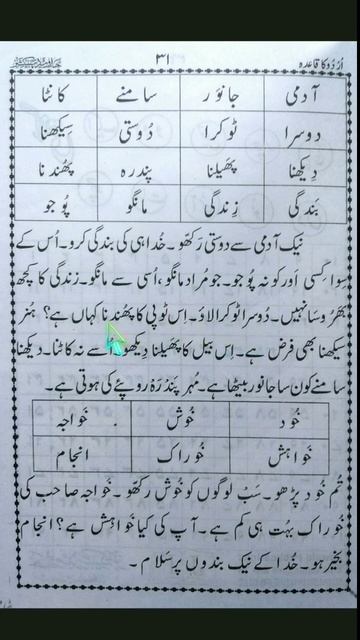 اُردو کا قاعدہ ۳۱
آدمی جانور سامنے کانٹا
دوسرا ٹوکرا دُوستی سِیکھنا
دِیکھنا پھیلنا پندرہ پھُندنا
بَندگی زِندگی مانگو پُوجو
نیک آدمی سے دوستی رَکھّو۔ خُدا ہی کی بندگی کرو۔ اُس کے
سِوا کِسی اَور کو نہ پُوجو۔ جو مُراد مانگو، اُسی سے مانگو۔ زندگی کا کچھ
بھَرُوسا نہیں۔ دُوسرا ٹوکرا لاؤ۔ اِس ٹوپی کا پھُندنا کہاں ہے؟ ہُنر
سیکھنا بھی فرض ہے۔ اِس بیل کا پھیلنا دِیکھو۔ اُسے نہ کاٹنا۔ دیکھنا
سامنے کون سا جانور بیٹھا ہے۔ مُہر پَندْرَہ روپئے کی ہوتی ہے۔
خُود خُوش خَواجہ
خَواہش خُوراک انجام
تُم خُود پڑھو۔ سَبْ لوگوں کو خُوش رکھّو۔ خَواجہ صاحب کی
خُوراک بہُت ہی کم ہے۔ آپ کی کیا خَواہِش ہے؟ انجام
بَخیر ہو۔ خُدا کے نیک بندوں پر سَلام۔